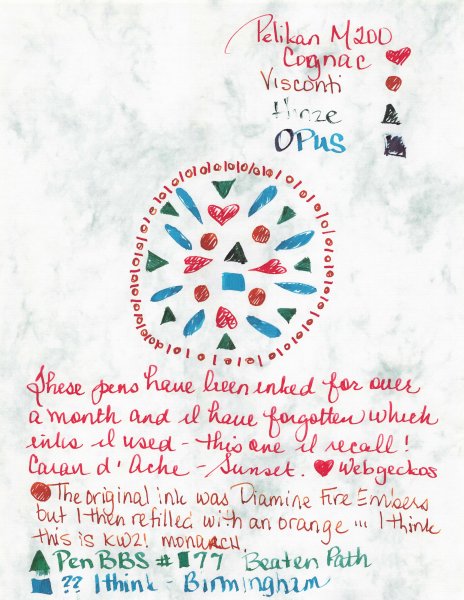 Pelikan M200
Cognac
Visconti
Hinze
OPUS
These pens have been inked for over
a month and I have forgotten which
inks I used - this one I recall!
Caran d'Ache - Sunset. Webgeckos
The original ink was Diamine Fire Embers
but I then refilled with an orange ... I think
this is KWZ! monarch
PenBBS #177 Beaten Path
?? I think - Birmingham